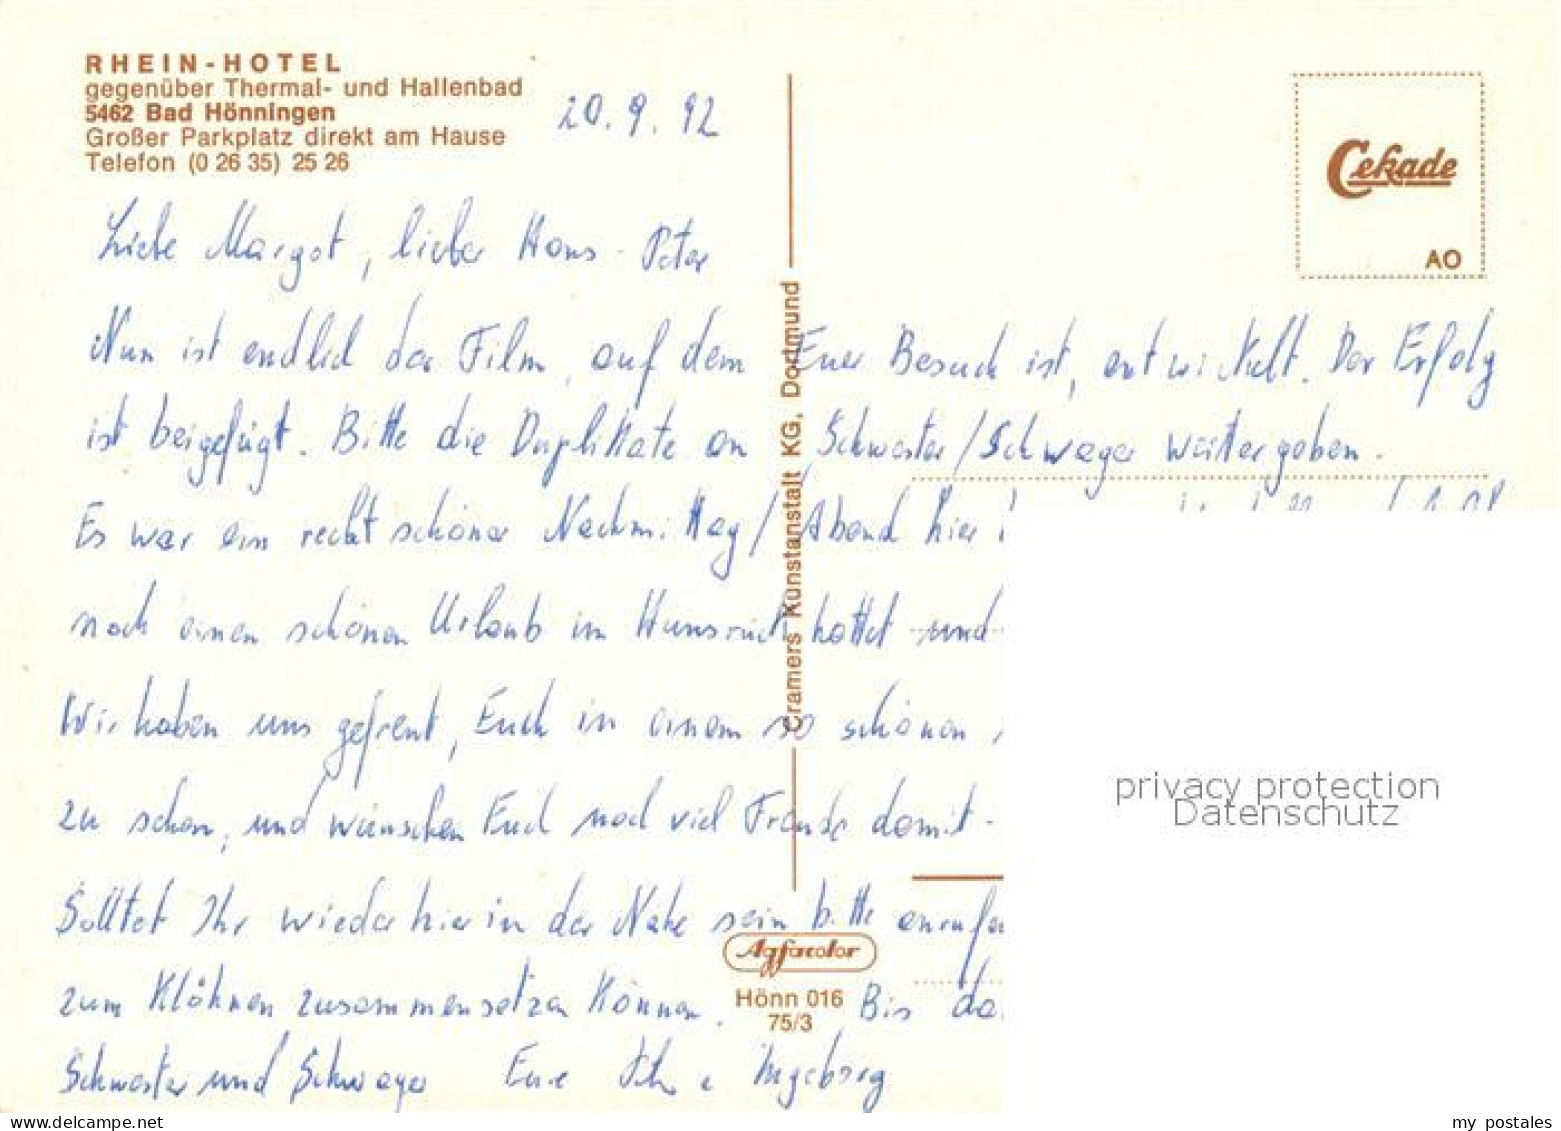 RHEIN-HOTEL
gegenüber Thermal- und Hallenbad
5462 Bad Hönningen
Großer Parkplatz direkt am Hause
Telefon (0 26 35) 25 26
20.9.92
Cekade
AO
Liebe Margot, lieber Hans-Peter
Nun ist endlich der Film, auf dem Euer Besuch ist, entwickelt. Der Erfolg
ist beigefügt. Bitte die Duplikate an Schwester/Schwager weitergeben.
Es war ein recht schöner Nachmittag/Abend hier
noch einen schönen Urlaub im Hunsrück hattet und
Wir haben uns gefreut, Euch in einem so schönen
zu sehen, und wünschen Euch noch viel Freude damit.
Solltet Ihr wieder hier in der Nähe sein bitte anrufen
zum Klöhnen zusammensetzen können. Bis da
Schwester und Schwager Eure Ingeborg
Cramers Kunstanstalt KG, Dortmund
Agfacolor
Hönn 016
75/3
privacy protection
Datenschutz
my postales